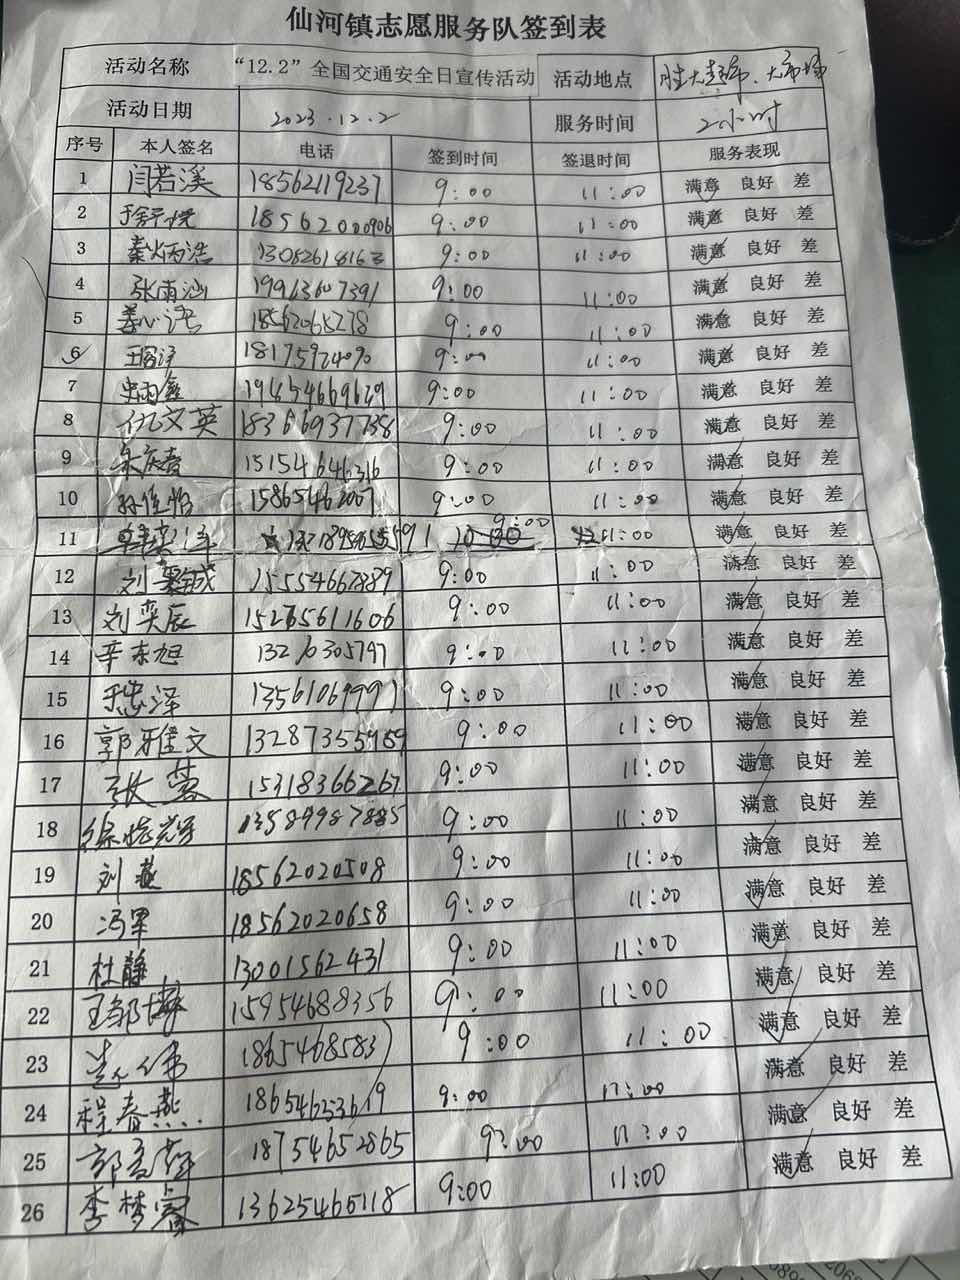 仙河镇志愿服务队签到表
活动名称 “12.2”全国交通安全日宣传活动 活动地点 胜大超市、大市场
活动日期 2023.12.2 服务时间 2小时
序号 本人签名 电话 签到时间 签退时间 服务表现
1 闫若溪 18562119237 9:00 11:00 满意 良好 差
2 18562000906 9:00 11:00 满意 良好 差
3 秦炳浩 13082618163 9:00 11:00 满意 良好 差
4 张雨汕 19963607391 9:00 11:00 满意 良好 差
5 姜心语 18562065278 9:00 11:00 满意 良好 差
6 18175974090 9:00 11:00 满意 良好 差
7 史雨鑫 9:00 11:00 满意 良好 差
8 仇文英 18366937738 9:00 11:00 满意 良好 差
9 宋庆春 15154646316 9:00 11:00 满意 良好 差
10 孙佳怡 15865462007 9:00 11:00 满意 良好 差
11 9:00 11:00 满意 良好 差
12 15554667889 9:00 11:00 满意 良好 差
13 刘奕辰 15265611606 9:00 11:00 满意 良好 差
14 辛东旭 13210305797 9:00 11:00 满意 良好 差
15 于忠泽 13561069991 9:00 11:00 满意 良好 差
16 郭雅文 13287355959 9:00 11:00 满意 良好 差
17 张蓉 15318366267 9:00 11:00 满意 良好 差
18 13589987885 9:00 11:00 满意 良好 差
19 刘燕 18562020508 9:00 11:00 满意 良好 差
20 冯军 18562020658 9:00 11:00 满意 良好 差
21 杜静 13001562431 9:00 11:00 满意 良好 差
22 15954688356 9:00 11:00 满意 良好 差
23 赵伟 18654685837 9:00 11:00 满意 良好 差
24 程春燕 18654653619 9:00 11:00 满意 良好 差
25 18754652865 9:00 11:00 满意 良好 差
26 李梦睿 13625465118 9:00 11:00 满意 良好 差